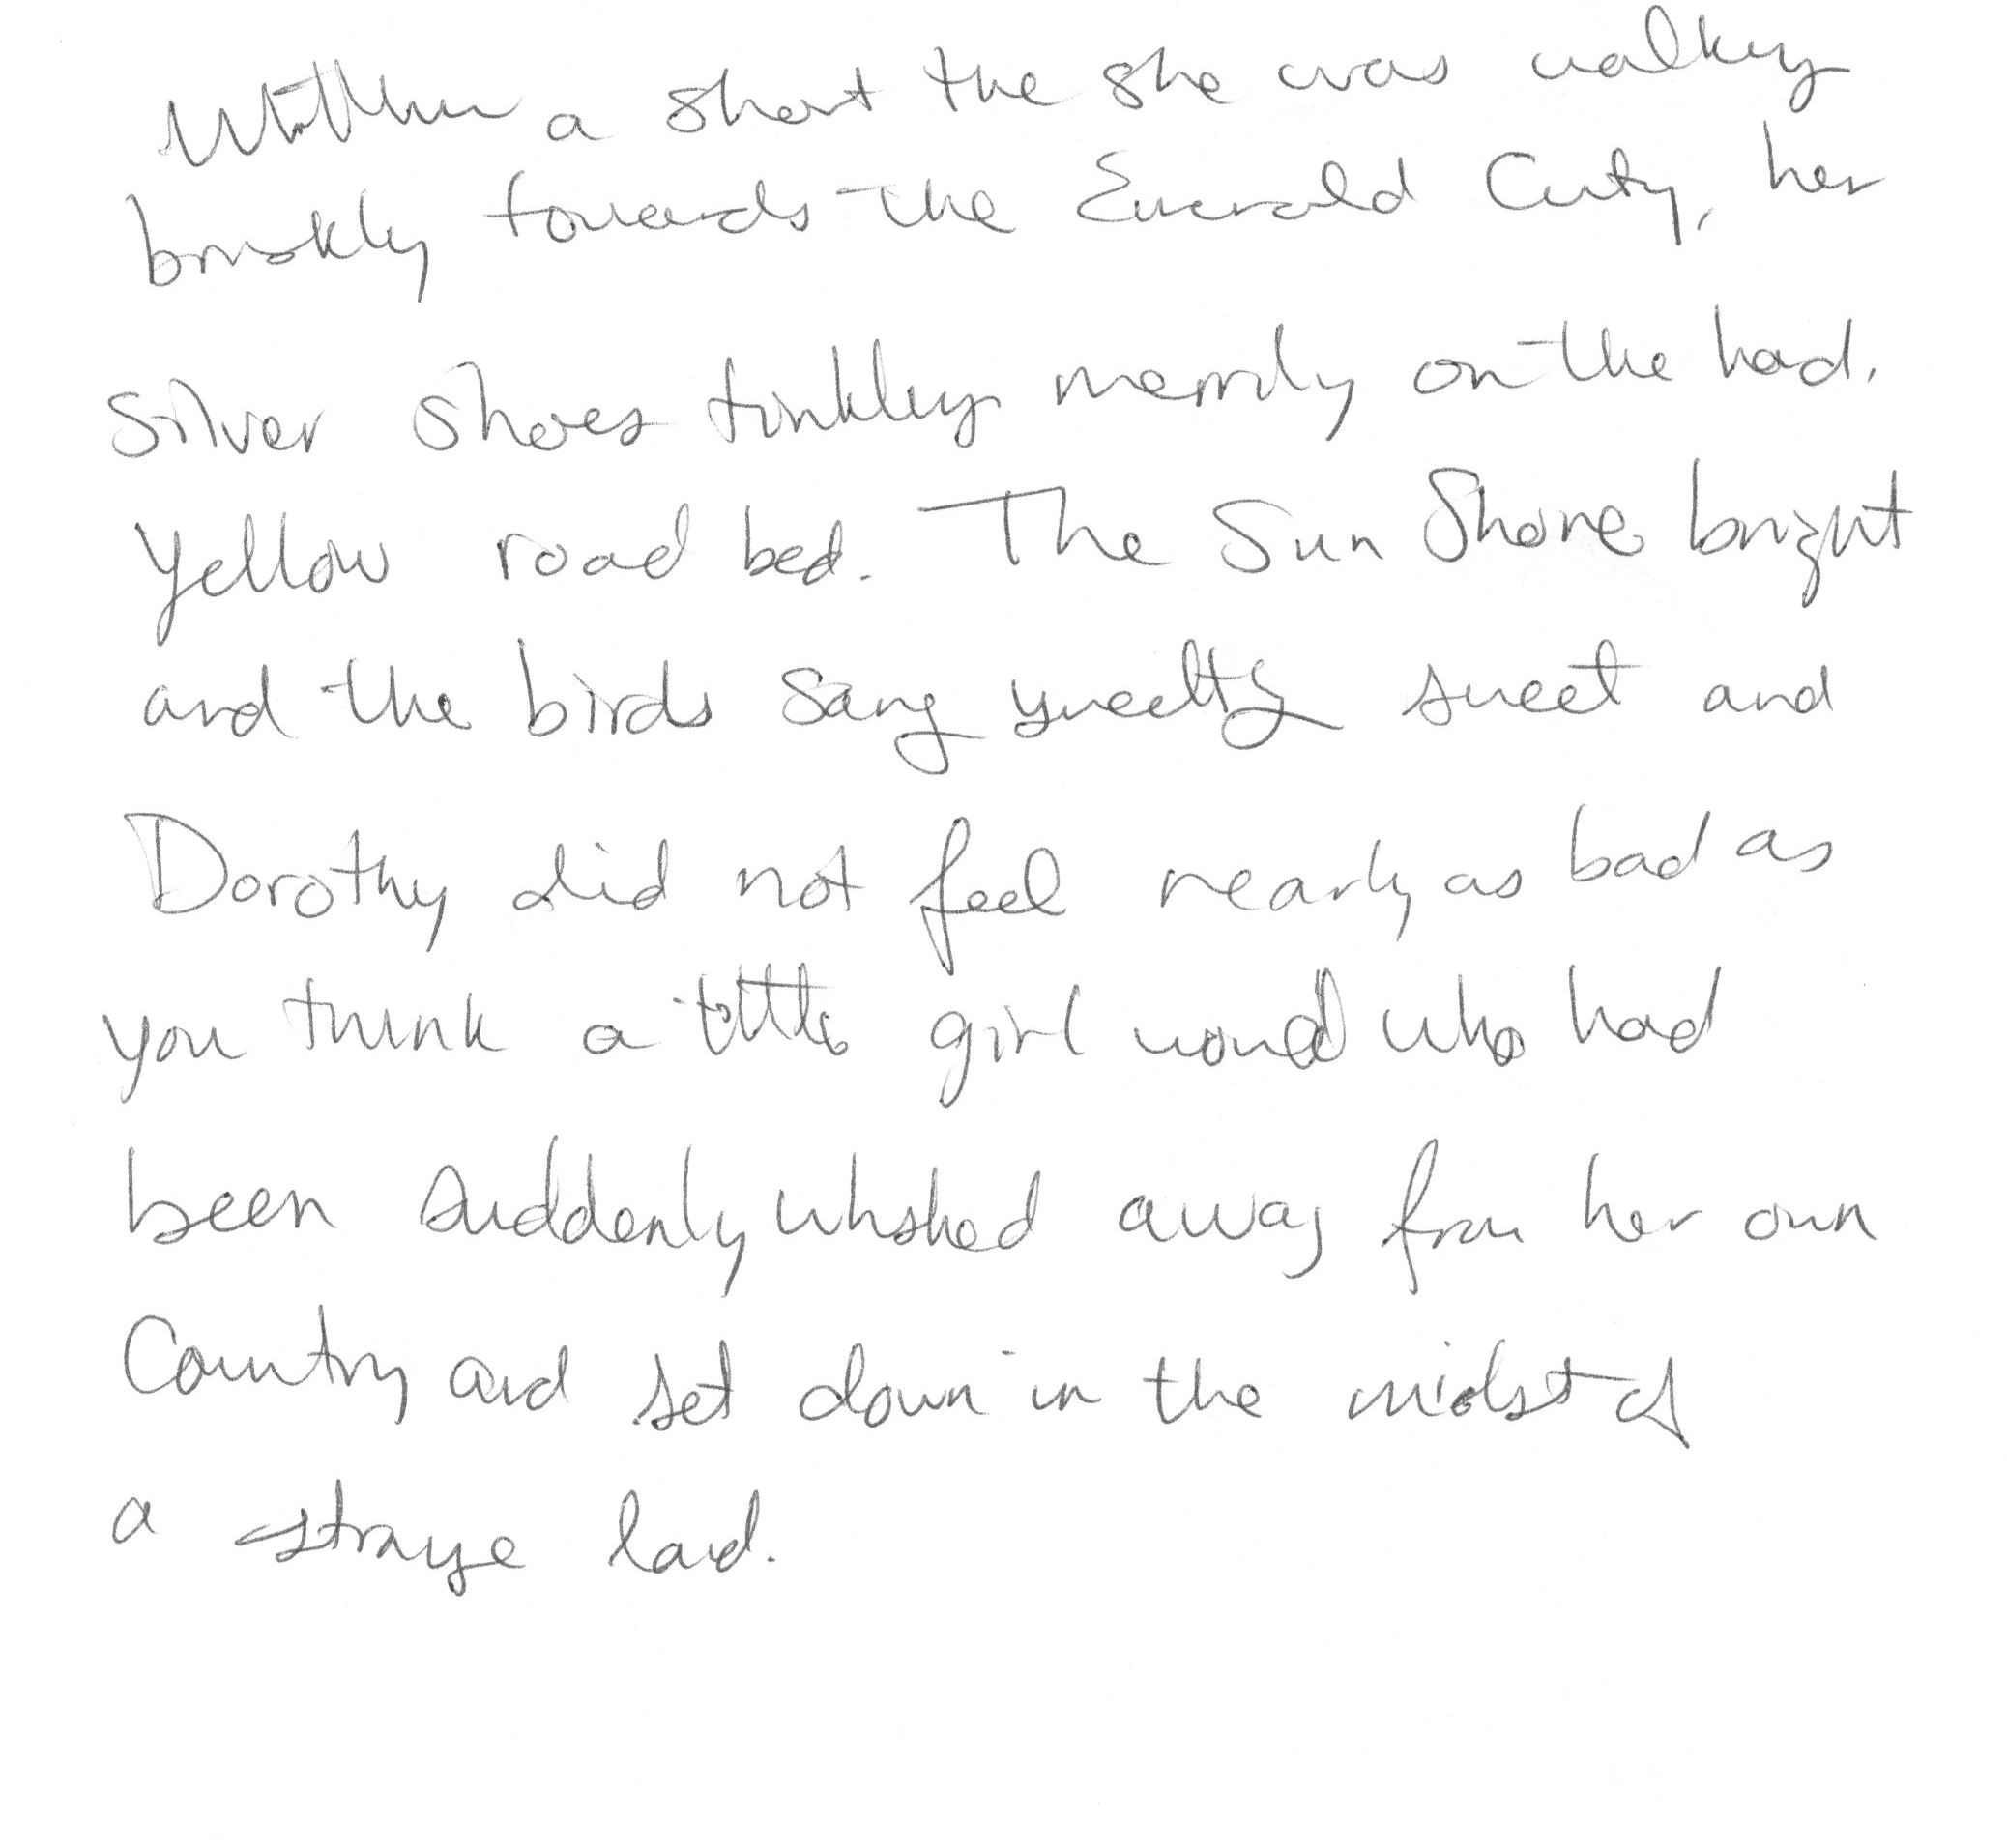 Within a short time she was walking
briskly towards the Emerald City, her
Silver Shoes tinkling merrily on the hard,
yellow road bed. The Sun Shone bright
and the birds sang sweet and
Dorothy did not feel nearly as bad as
you think a little girl would who had
been suddenly whisked away from her own
Country and set down in the midst of
a strange land.